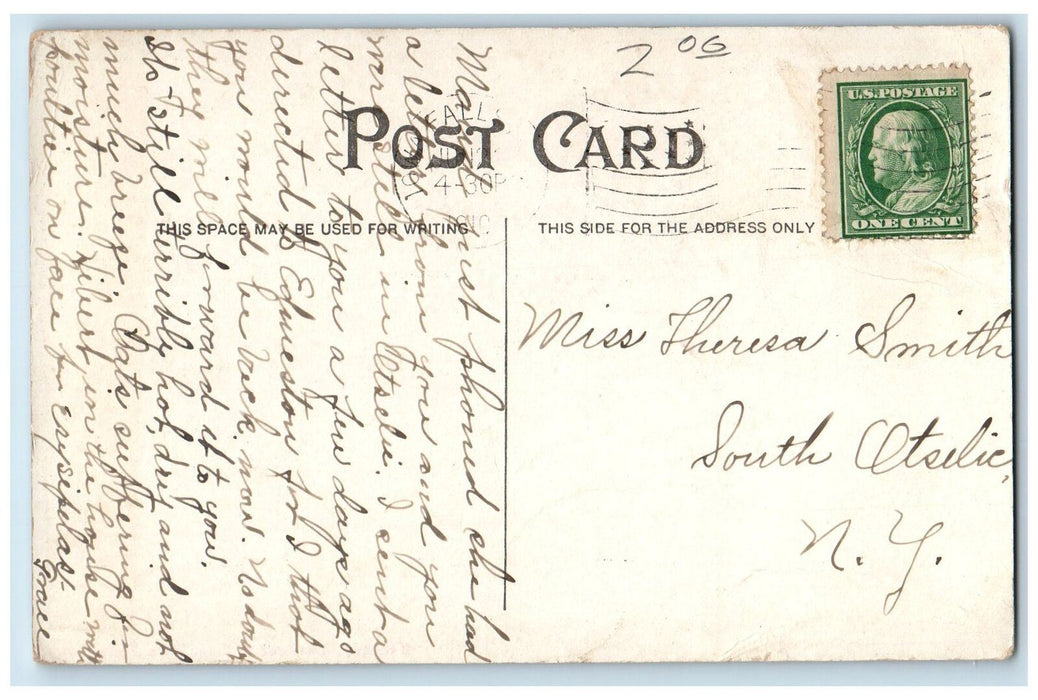 2 06
U.S. POSTAGE
ONE CENT
POST CARD
4-30P
THIS SPACE MAY BE USED FOR WRITING.
THIS SIDE FOR THE ADDRESS ONLY
Miss Theresa Smith
South Otselic
N. Y.
just phoned she had
a letter from you and you
were still in Otselic. I sent a
letter to you a few days ago
directed to Edmeston for I thot
you would be back now. No doubt
they will forward it to you.
It's still terribly hot, dry and not
much breeze. Oats suffering for
moisture. Libert in the house with
poultice on face for erysipelas-
Grace